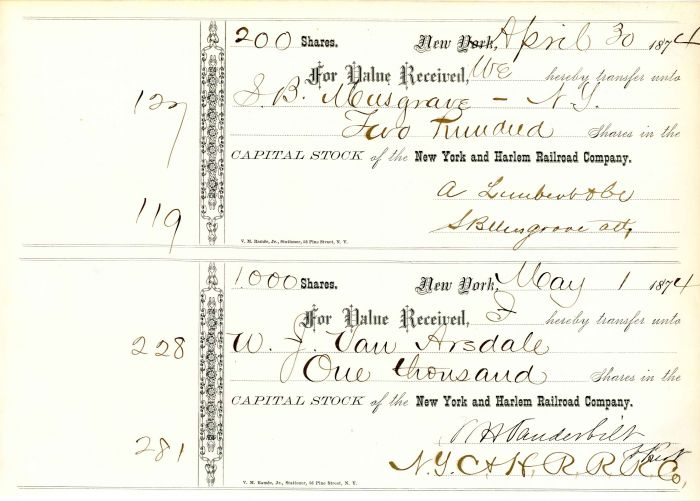 200 Shares. New York, April 30 1874
For Value Received, We hereby transfer unto
127
S. B. Musgrave - N.Y.
Two Hundred Shares in the
CAPITAL STOCK of the New York and Harlem Railroad Company.
119
A
S B Musgrave atty
V. M. Rande, Jr., Stationer, 56 Pine Street, N. Y.
1.000 Shares. New York, May 1 1874
For Value Received, I hereby transfer unto
228
W. J. Van Arsdale
One thousand Shares in the
CAPITAL STOCK of the New York and Harlem Railroad Company.
281
Vanderbilt
N.Y.C & H. R. R. R. Co,
V. M. Rande, Jr., Stationer, 56 Pine Street, N. Y.